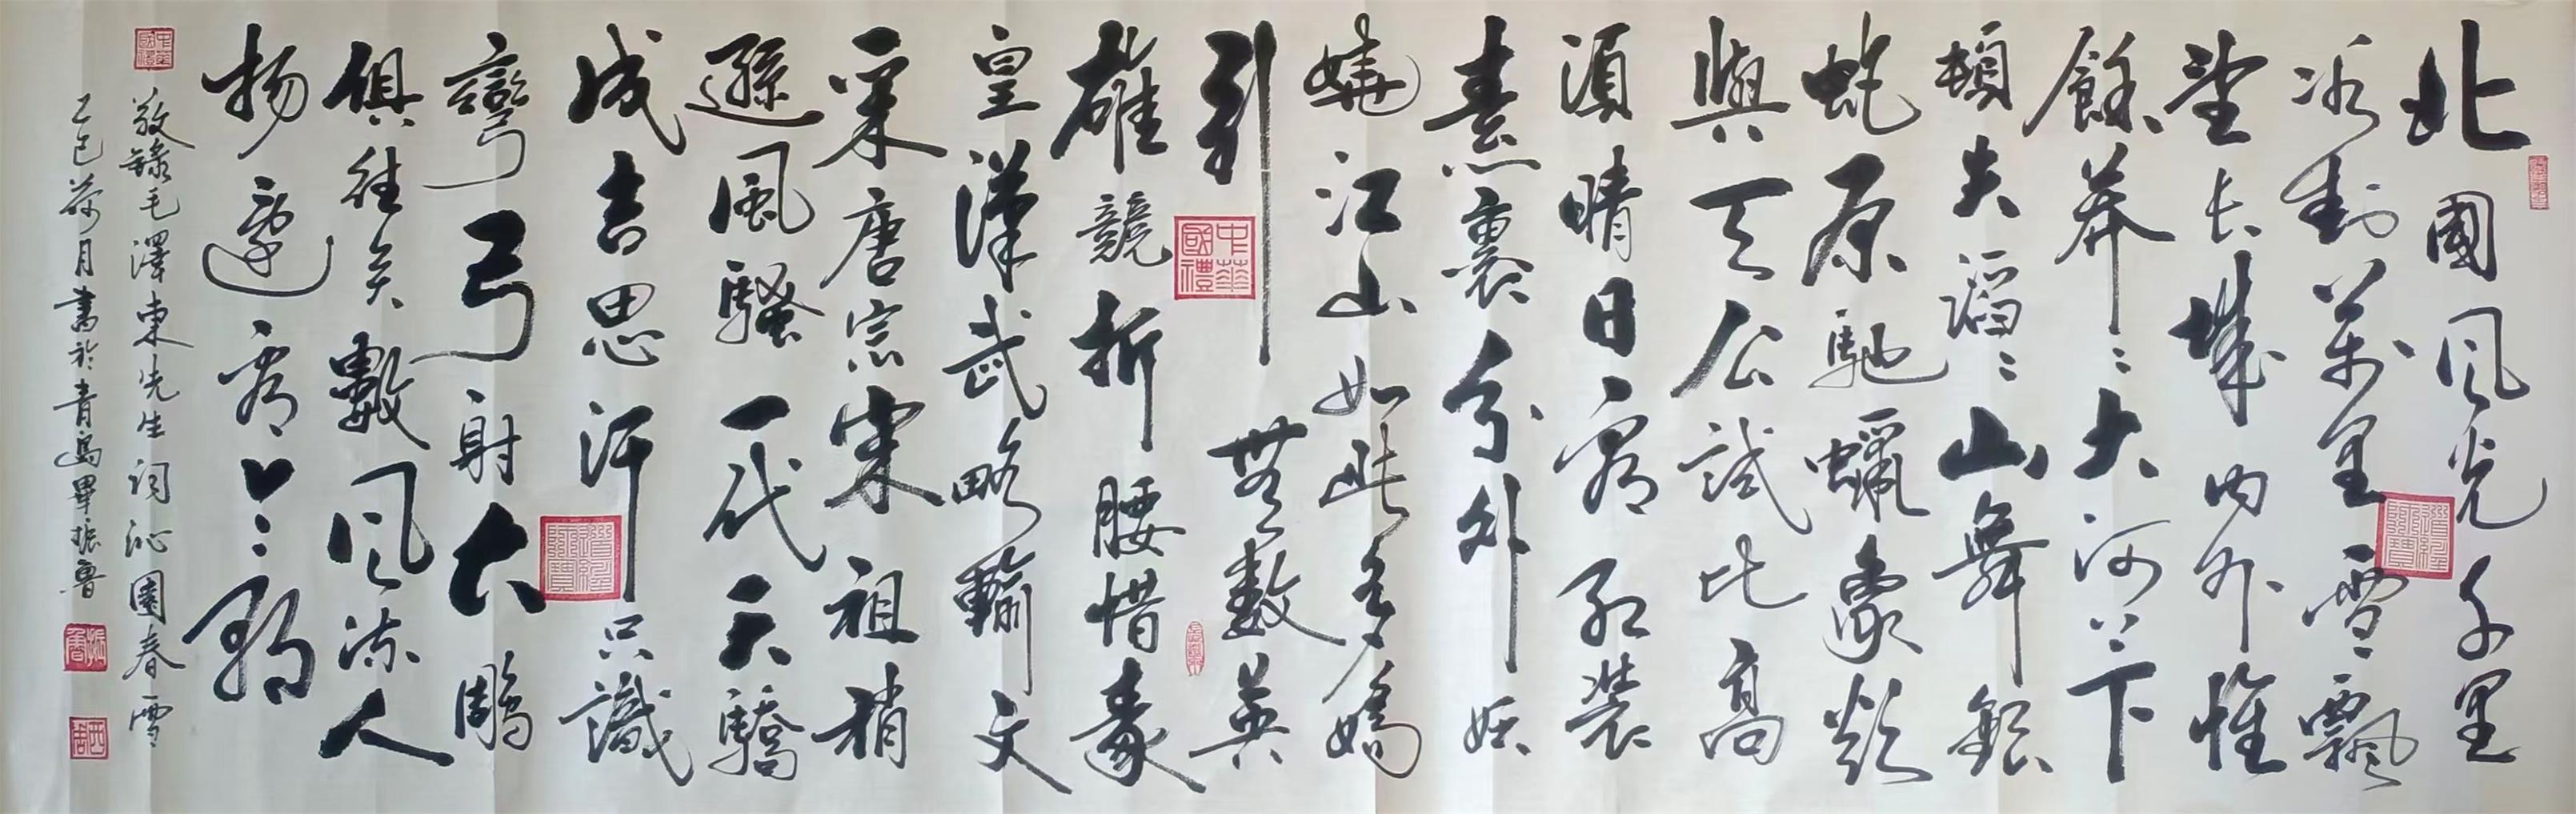 北國風光千里
冰封萬里雪飄
望長城內外惟
餘莽〻大河上下
頓失滔〻山舞銀
蛇原馳蠟象欲
與天公試比高
須晴日看紅裝
素裹分外妖
嬈江山如此多嬌
引無數英
雄競折腰惜秦
皇漢武略輸文
采唐宗宋祖稍
遜風騷一代天驕
成吉思汗只識
彎弓射大鵰
俱往矣數風流人
物還看今朝
敬錄毛澤東先生詞沁園春雪
乙巳荷月書於青島畢振魯
中華國禮
振魯